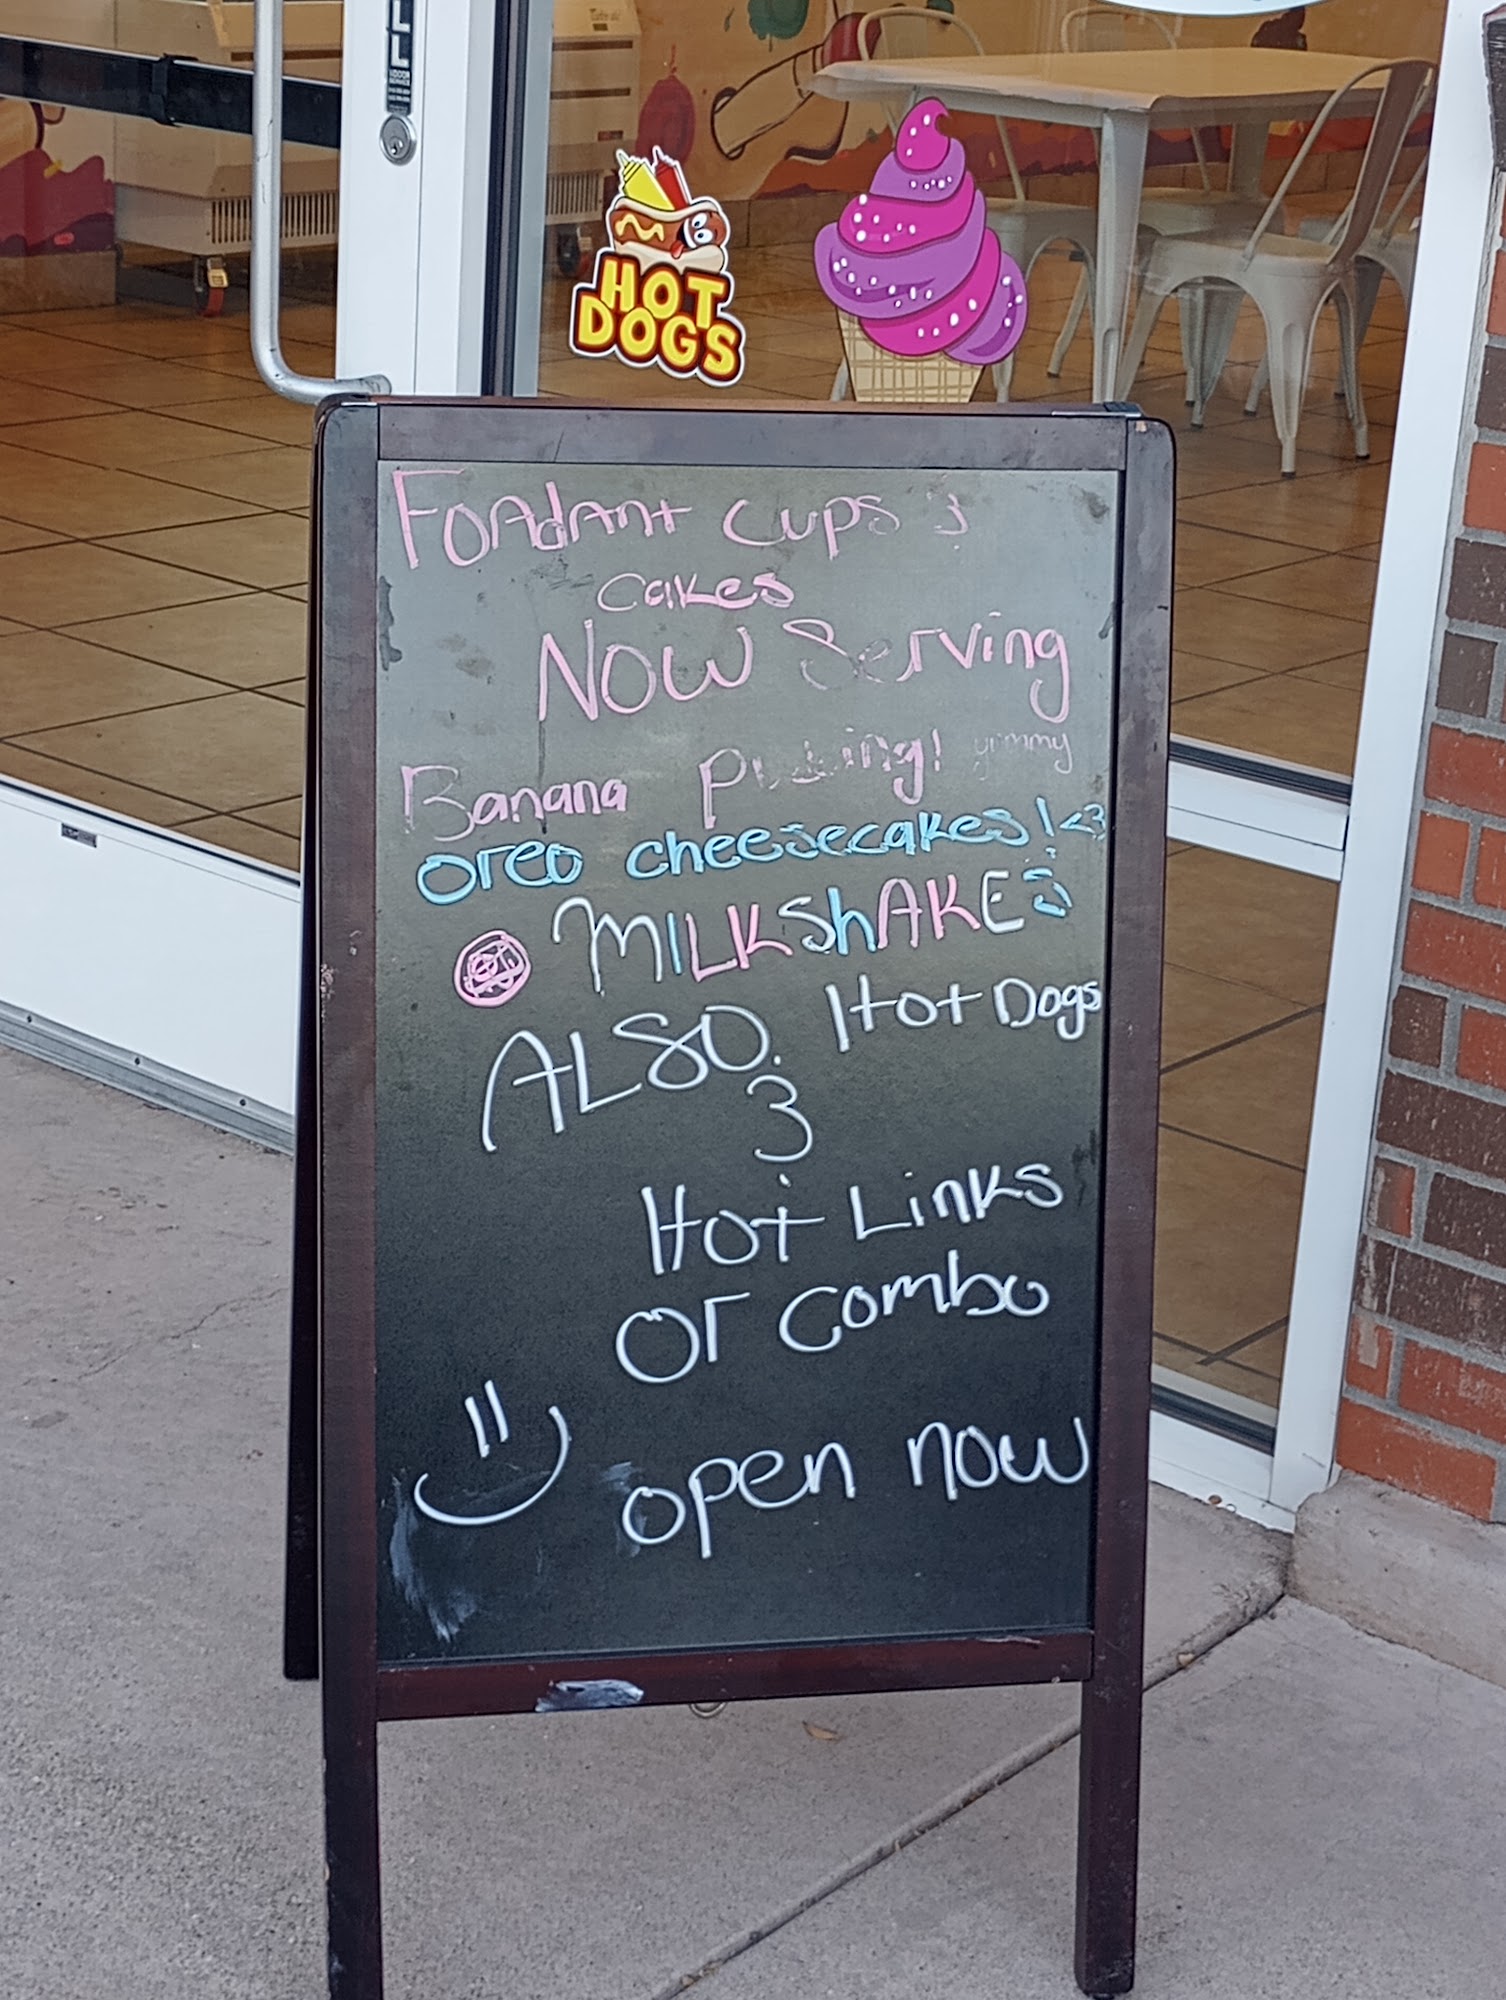 HOT
DOGS
Fondant Cups &
cakes
Now Serving
Banana Pudding! yummy
oreo cheesecakes! <3
MILKShAKES
ALSO. Hot Dogs
&
Hot Links
or combo
open now